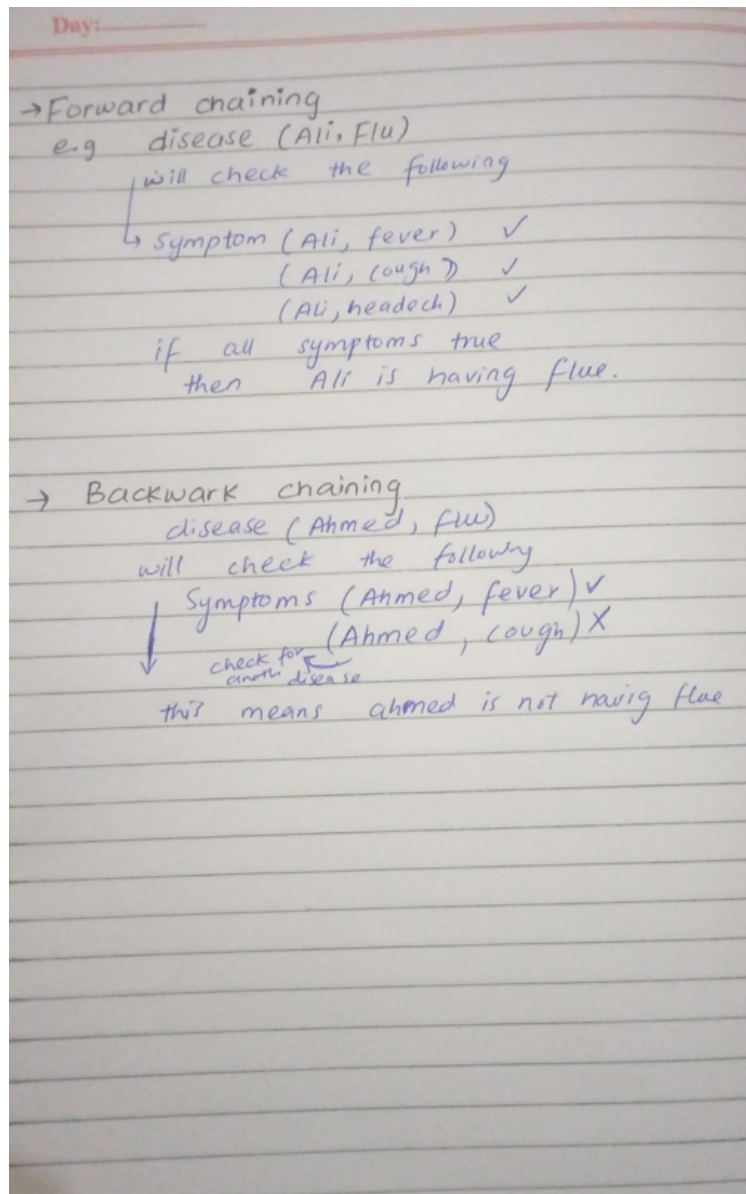 Day:
→ Forward chaining
e.g disease (Ali, Flu)
will check the following
↳ symptom (Ali, fever) ✓
(Ali, cough) ✓
(Ali, headech) ✓
if all symptoms true
then Ali is having flue.
→ Backwark chaining
disease (Ahmed, flu)
will check the following
Symptoms (Ahmed, fever) ✓
(Ahmed, cough) X
check for
anoth disease
this means ahmed is not havig flue